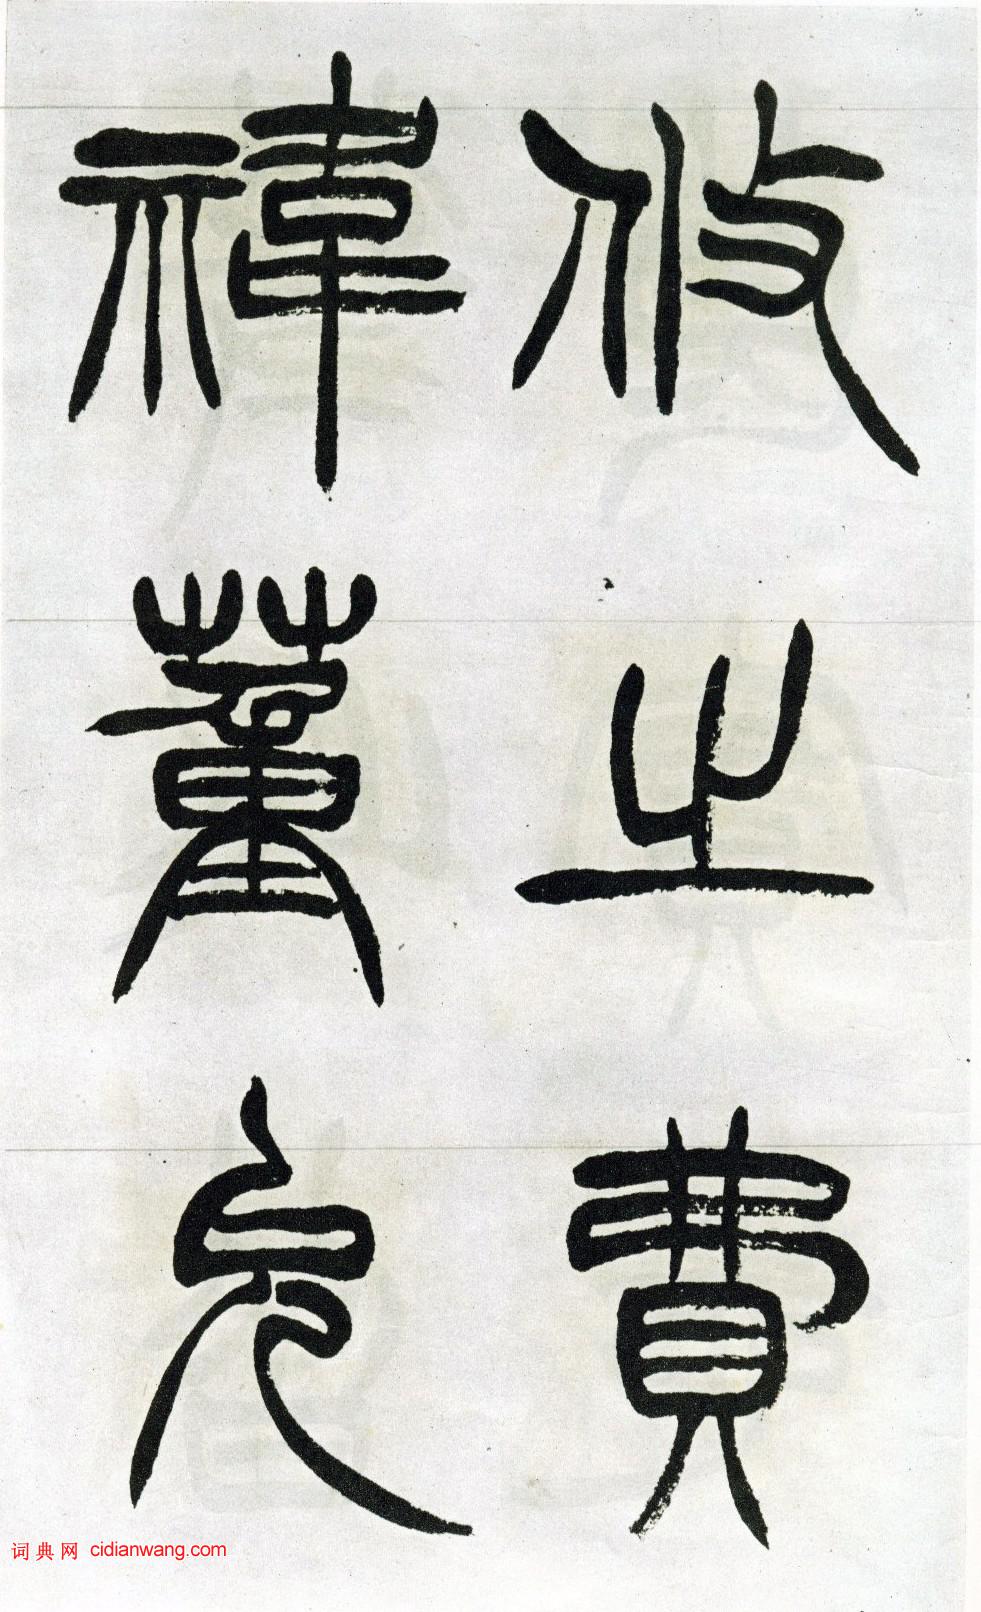 攸之費
禕董允
词典网 cidianwang.com